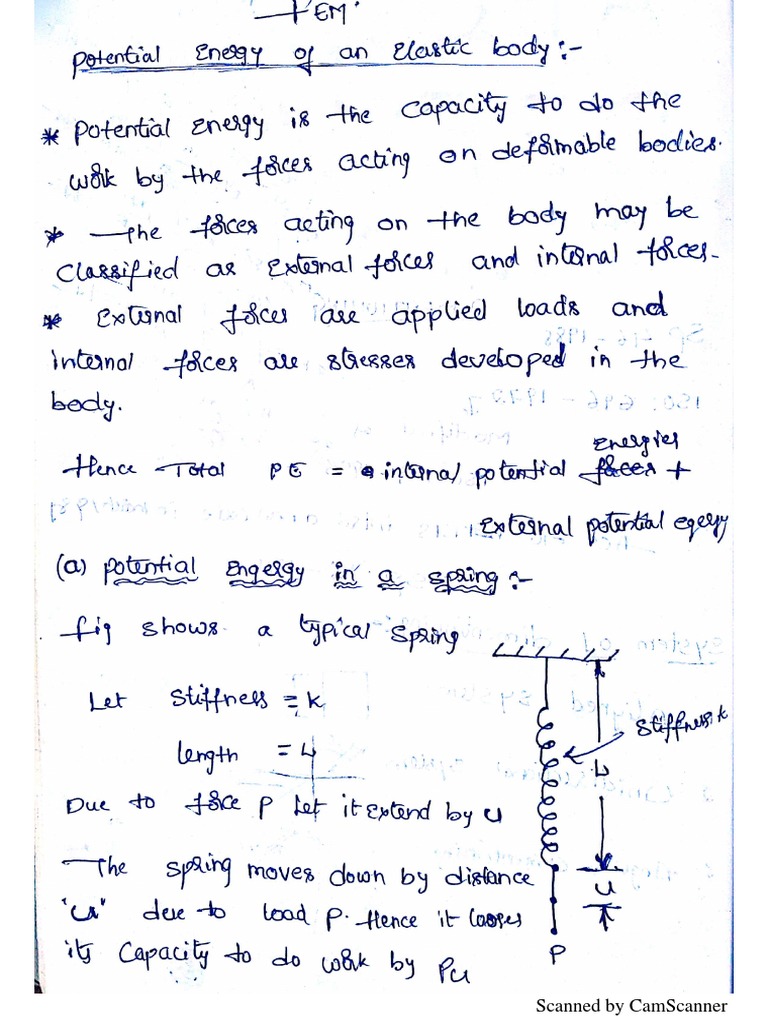 FEM
Potential Energy of an Elastic body :-
* Potential Energy is the capacity to do the
work by the forces acting on deformable bodies.
* The forces acting on the body may be
classified as External forces and internal forces.
* External forces are applied loads and
internal forces are stresses developed in the
body.
Energies
Hence Total PE = internal potential forces +
External potential egergy
(a) potential Engergy in a spring :-
fig shows a typical spring
Let stiffness = k
stiffness k
length = L
L
Due to force P Let it extend by u
The spring moves down by distance
u
"u" due to load P. Hence it looses
its capacity to do work by Pu
P
Scanned by CamScanner